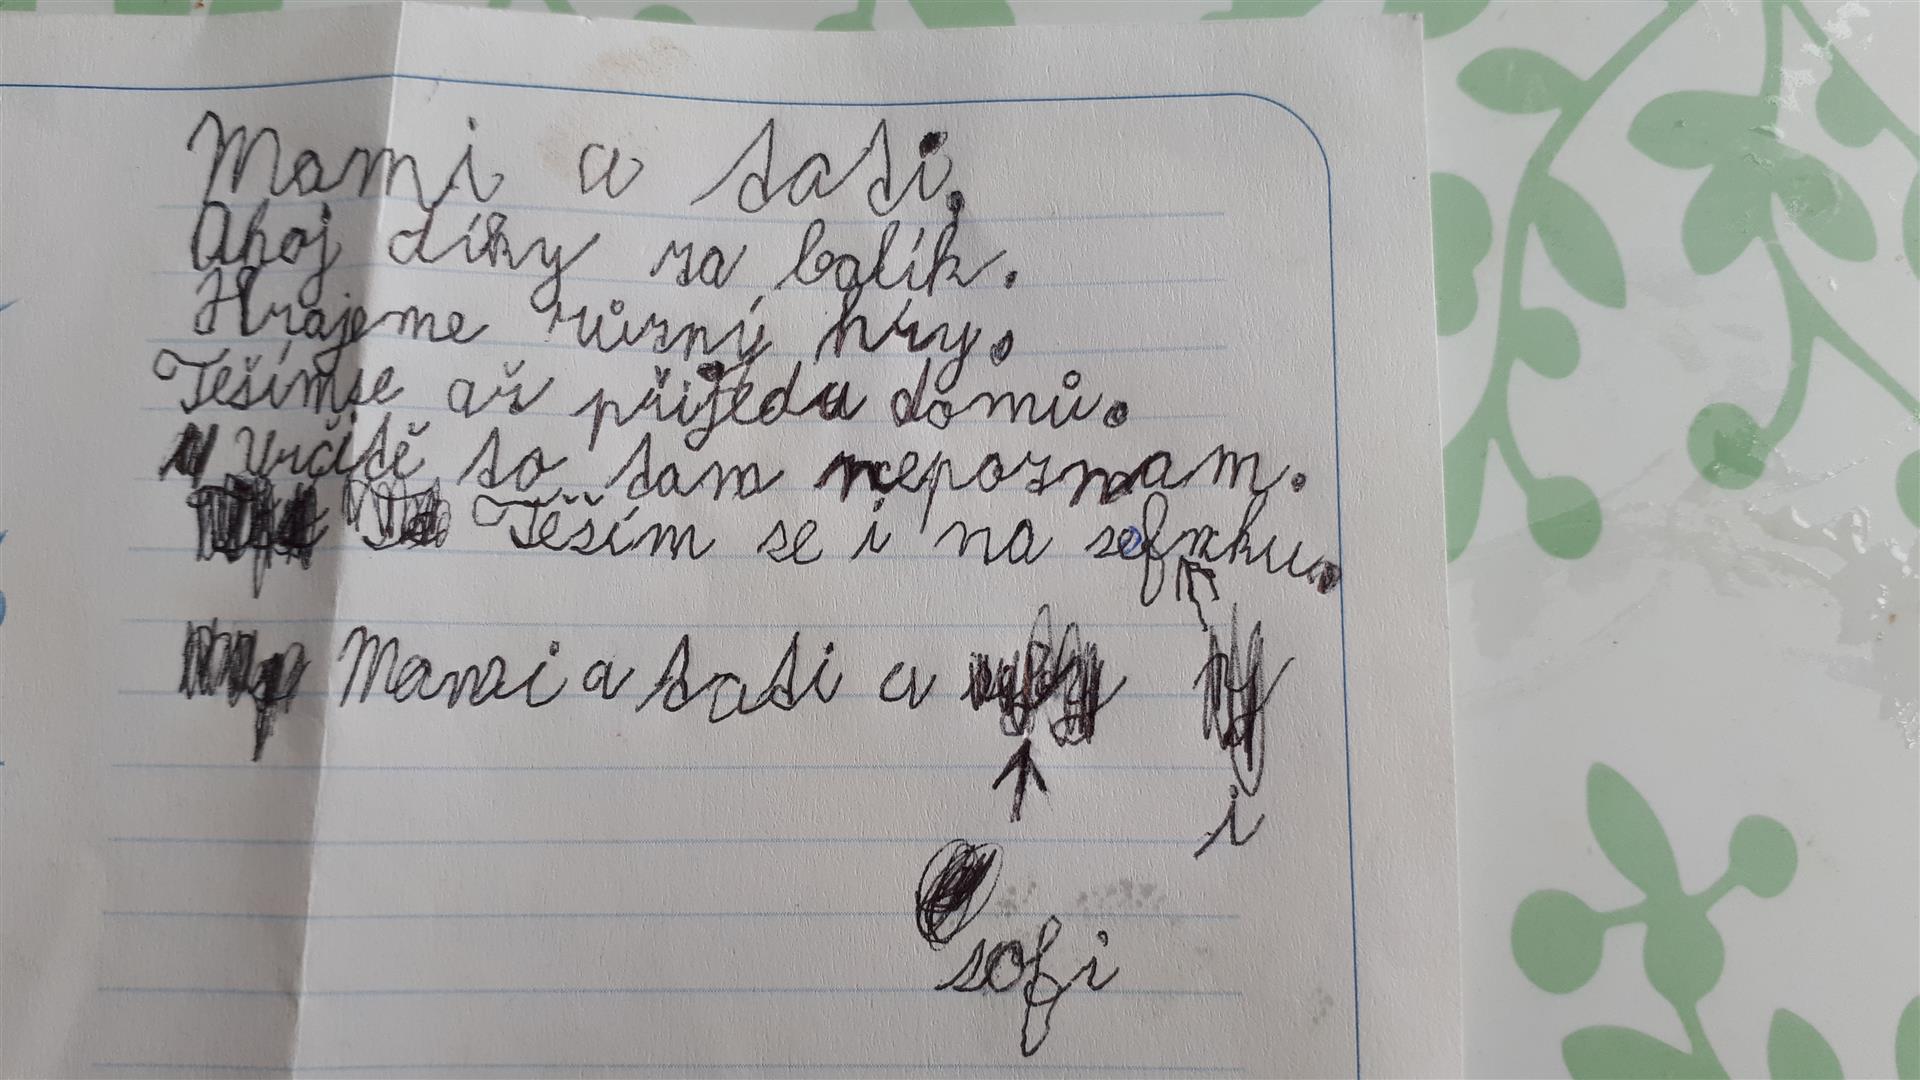 Mami a tati,
Ahoj díky za balík.
Hrajeme různý hry.
Těšímse až přijedu domů.
Určitě to tam nepoznam.
Těším se i na sofnku.
Mami a tati a
i
sofi